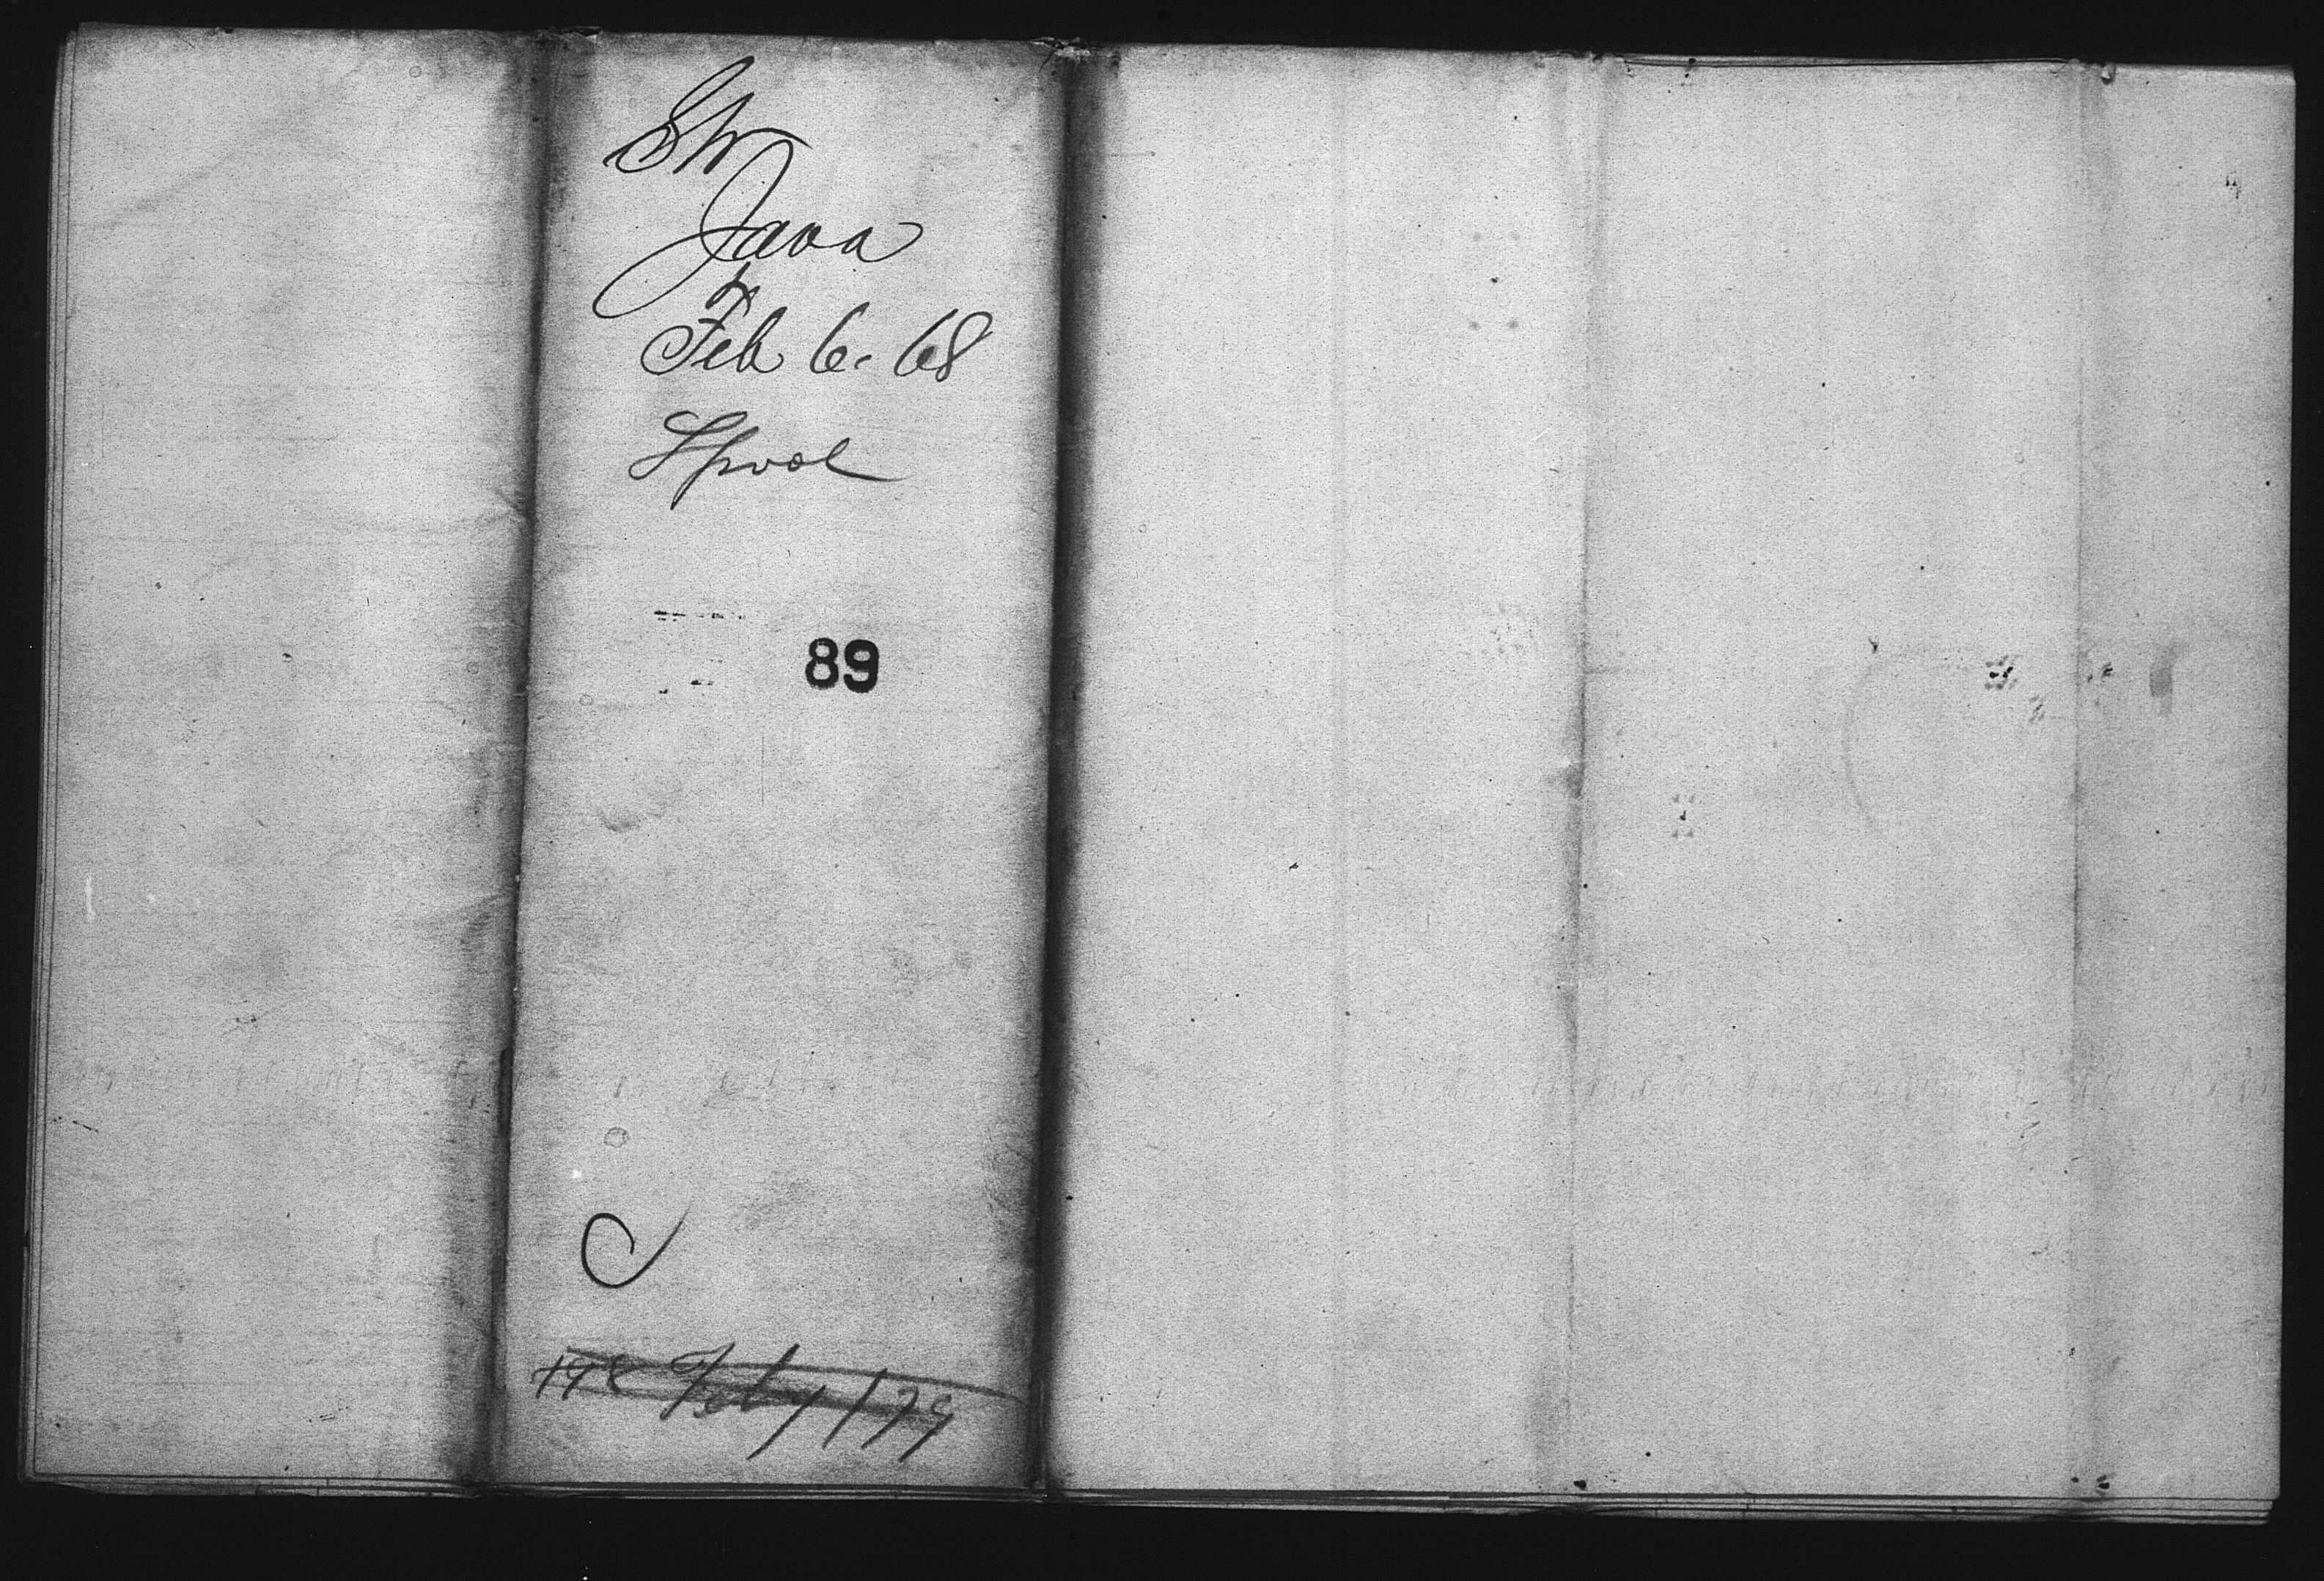 SW
Java
Feb 6. 68
Lpool
89
C